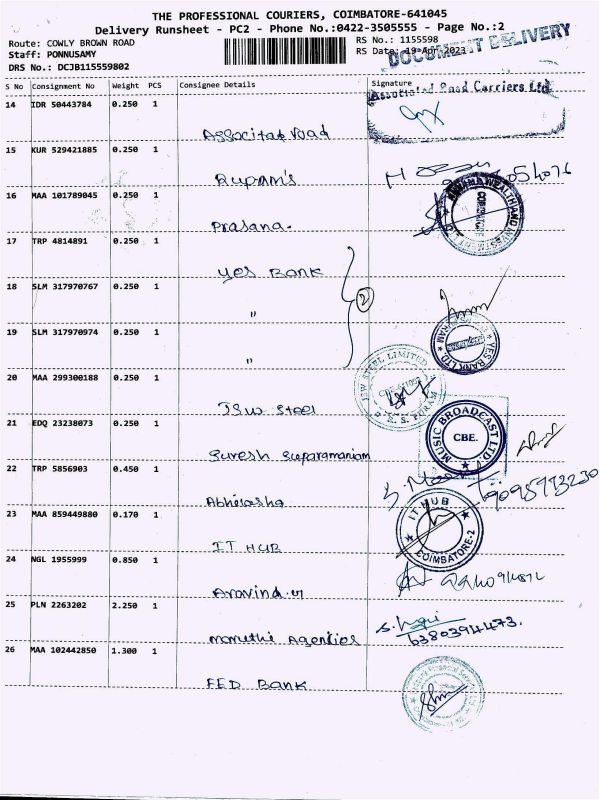 THE PROFESSIONAL COURIERS, COIMBATORE-641045
Delivery Runsheet - PC2 - Phone No.:0422-3505555 - Page No.:2
Route: COWLY BROWN ROAD
RS No.: 1155598
Staff: PONNUSAMY
RS Date: 19-Apr-2023
DOCUMENT DELIVERY
DRS No.: DCJB115559802
S No Consignment No Weight PCS Consignee Details Signature
Associated Road Carriers Ltd
14 IDR 50443784 0.250 1
Associtap road
15 KUR 529421885 0.250 1
Rupam's
16 MAA 101789045 0.250 1
Prasana.
17 TRP 4814891 0.250 1
Yes Bank
18 SLM 317970767 0.250 1
"
2
19 SLM 317970974 0.250 1
"
YES BANK LTD.
20 MAA 299300188 0.250 1
JSW Steel
JSW STEEL LIMITED
21 EDQ 23238073 0.250 1
Suresh Suparamaniam
MUSIC BROADCAST LTD.
CBE.
22 TRP 5856903 0.450 1
Abhilasha
23 MAA 859449880 0.170 1
IT HUB
IT HUB
COIMBATORE-2
24 NGL 1955999 0.850 1
Aravind.
25 PLN 2263202 2.250 1
Maruthi Agenties
6380394473.
26 MAA 102442850 1.300 1
FED Bank